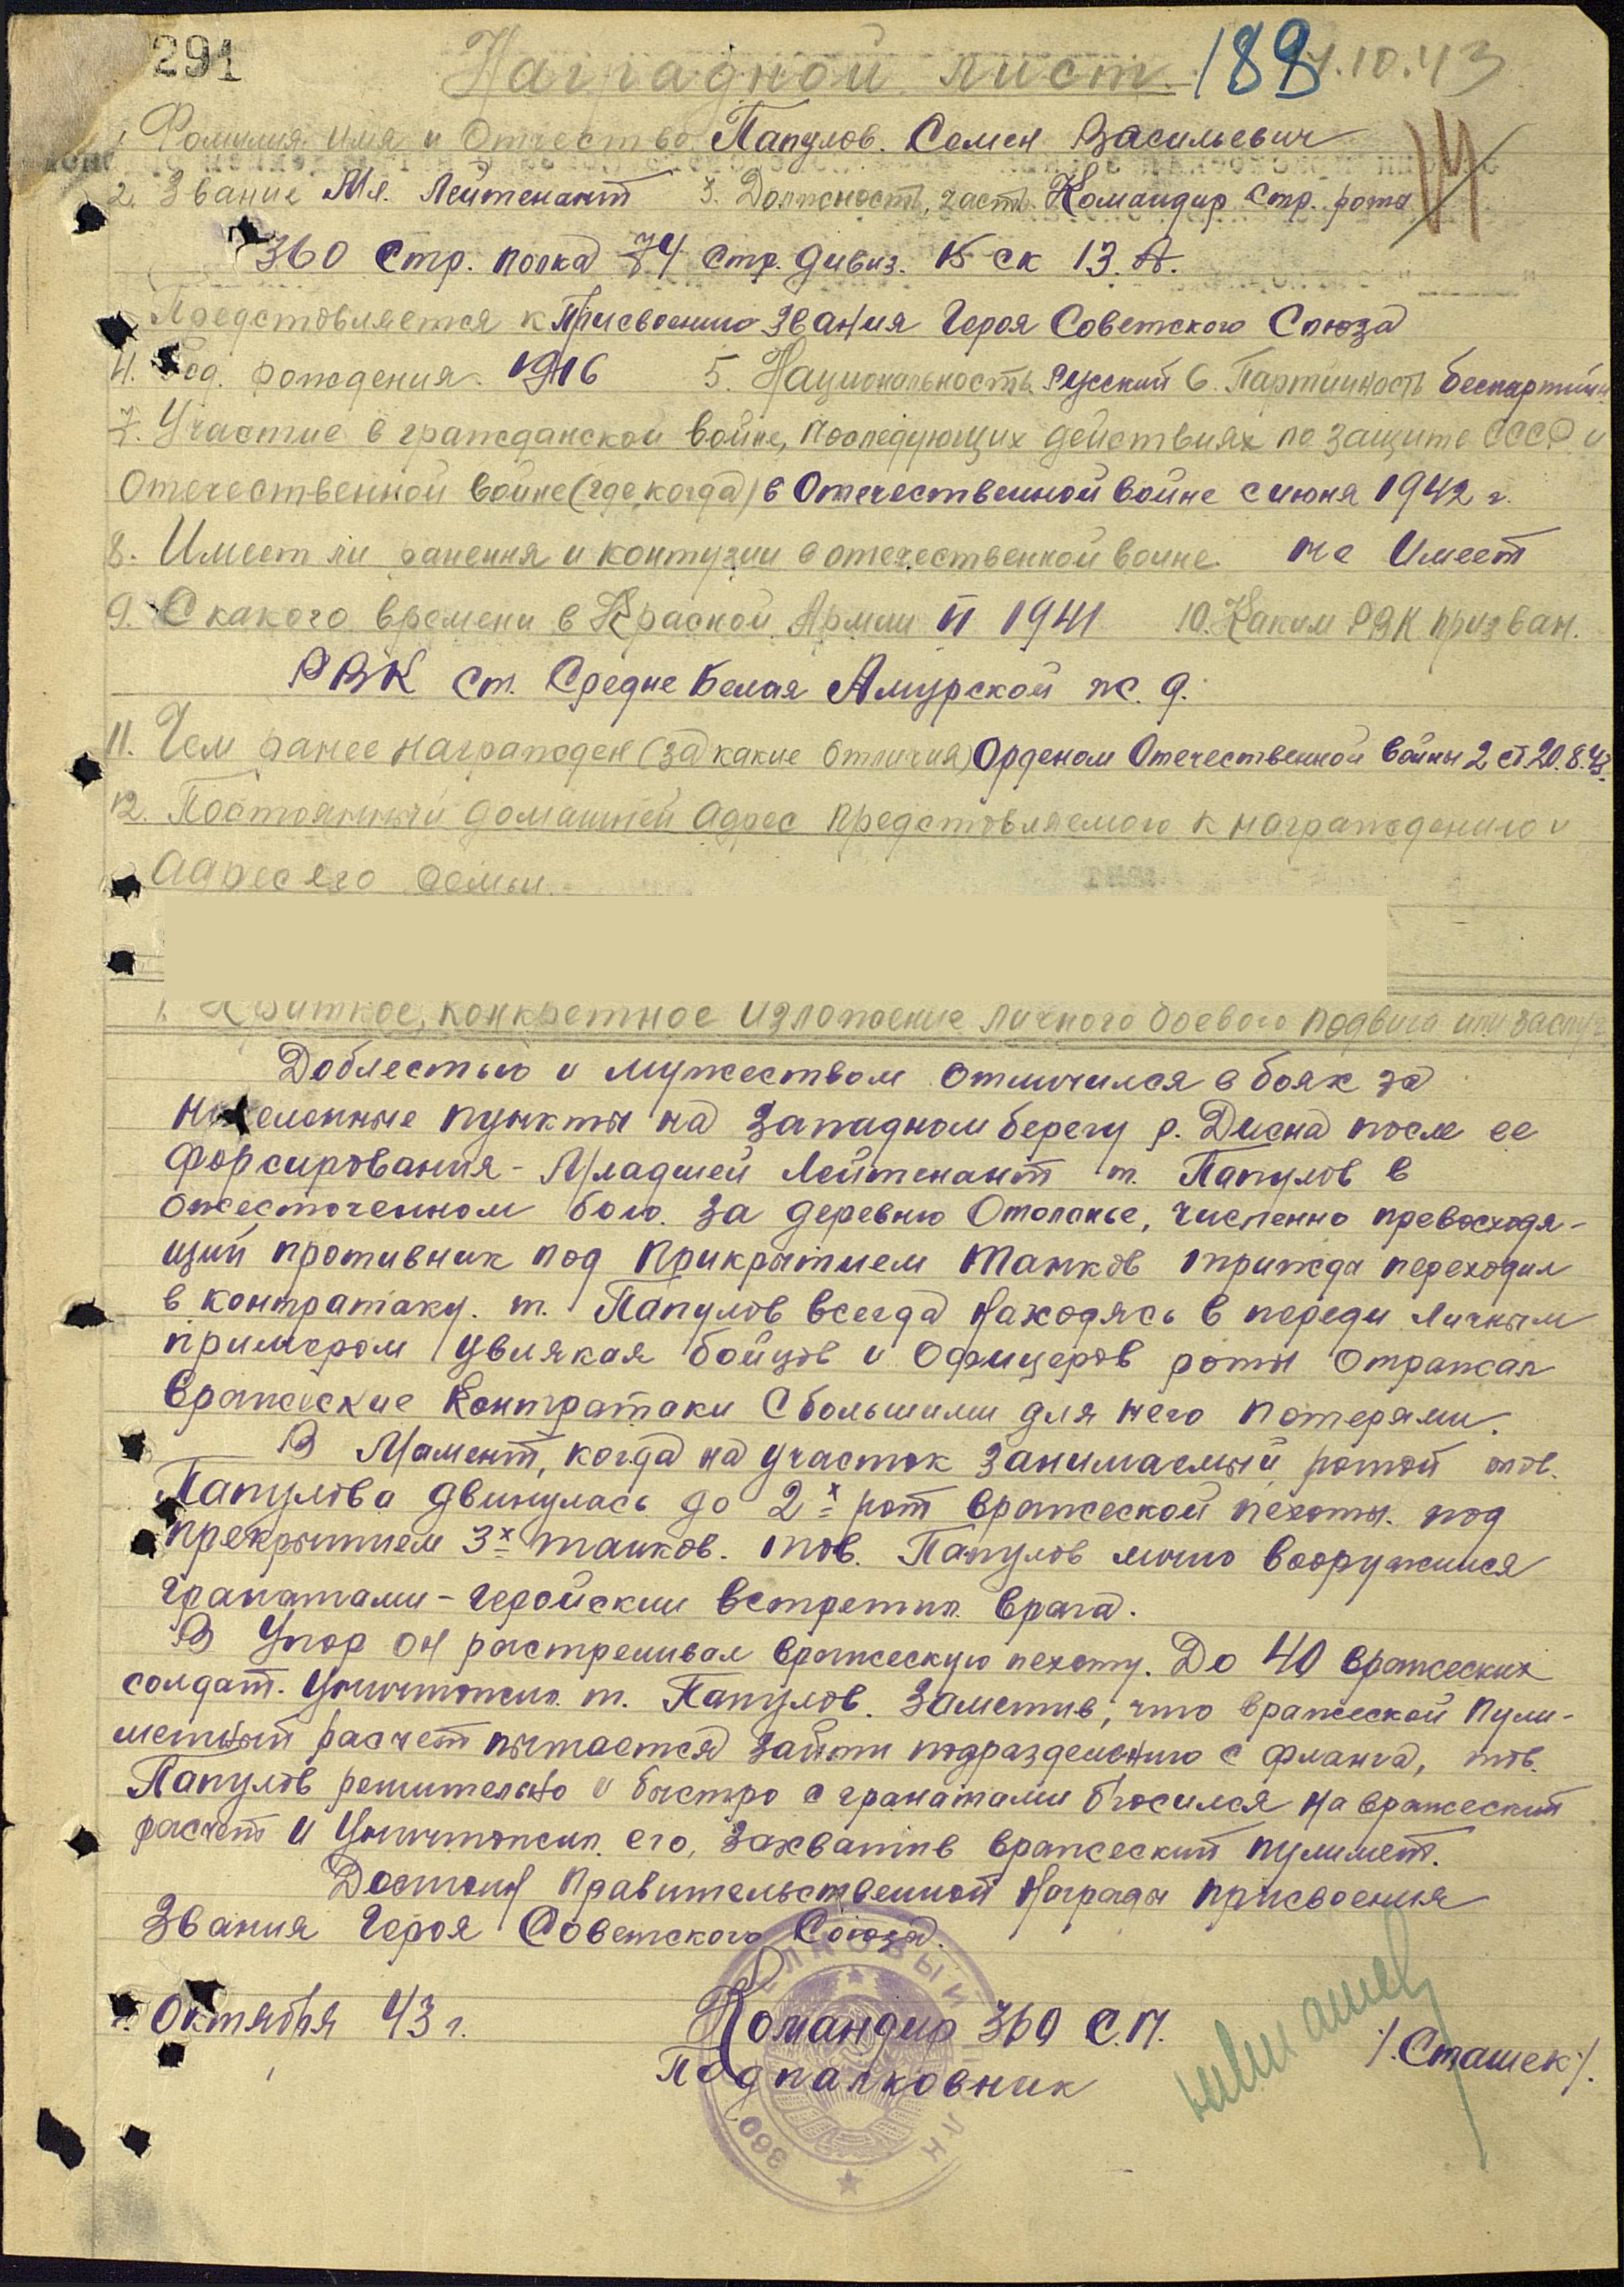 291
Наградной лист. 188 4.10.43
1. Фамилия имя и Отчество. Папулов. Семен Васильевич
2. Звание Мл. Лейтенант 3. Должность, часть. Командир Стр. роты
360 Стр. полка 74 Стр. дивиз. 15 ск 13. А.
Представляется к Присвоению Звания Героя Советского Союза
4. Год. рождения. 1916 5. Национальность. Русский 6. Партийность беспартийн
7. Участие в гражданской войне, последующих действиях по защите СССР и
Отечественной войне (где, когда) в Отечественной войне с июня 1942 г.
8. Имеет ли ранения и контузии в отечественной воине. не Имеет
9. С какого времени в Красной Армии 1941 10. Каким РВК призван.
РВК ст. Средне Белая Амурской ж. д.
11. Чем ранее награжден (за какие отличия) Орденом Отечественной войны 2 ст. 20.8.43.
12. Постоянный домашний адрес представляемого к награждению и
адрес его семьи.
1. Краткое, конкретное изложение личного боевого подвига или заслуг
Доблестью и мужеством отличился в боях за
населенные пункты на западном берегу р. Десна после ее
форсирования - Младшей Лейтенант т. Папулов в
ожесточенном бою. За деревню Отолонье, численно превосходя-
щий противник под Прикрытием танков трижды переходил
в контратаку. т. Папулов всегда находясь в переди личным
примером увлякая бойцов и офицеров роты отражал
вражеские контратаки С большими для него потерями.
В Момент, когда на участок занимаемый ротой тов.
Папулова двинулась до 2х рот вражеской пехоты. под
прекрытием 3х танков. тов. Папулов лично вооружился
гранатами - геройскии встретил врага.
В Упор он растреливал вражескую пехоту. До 40 вражеских
солдат. уничтожил т. Папулов. Заметив, что вражеской пули-
метный расчет пытается зайти подразделению с фланга, тов.
Папулов решительно и быстро с гранатами бросился на вражеский
расчет и уничтожил его, захватив вражеский пулимет.
Достоин Правительственной Награды присвоения
Звания Героя Советского Союза.
Октября 43 г. Командир 360 С.П.
Подпалковник /.Сташек/.
360